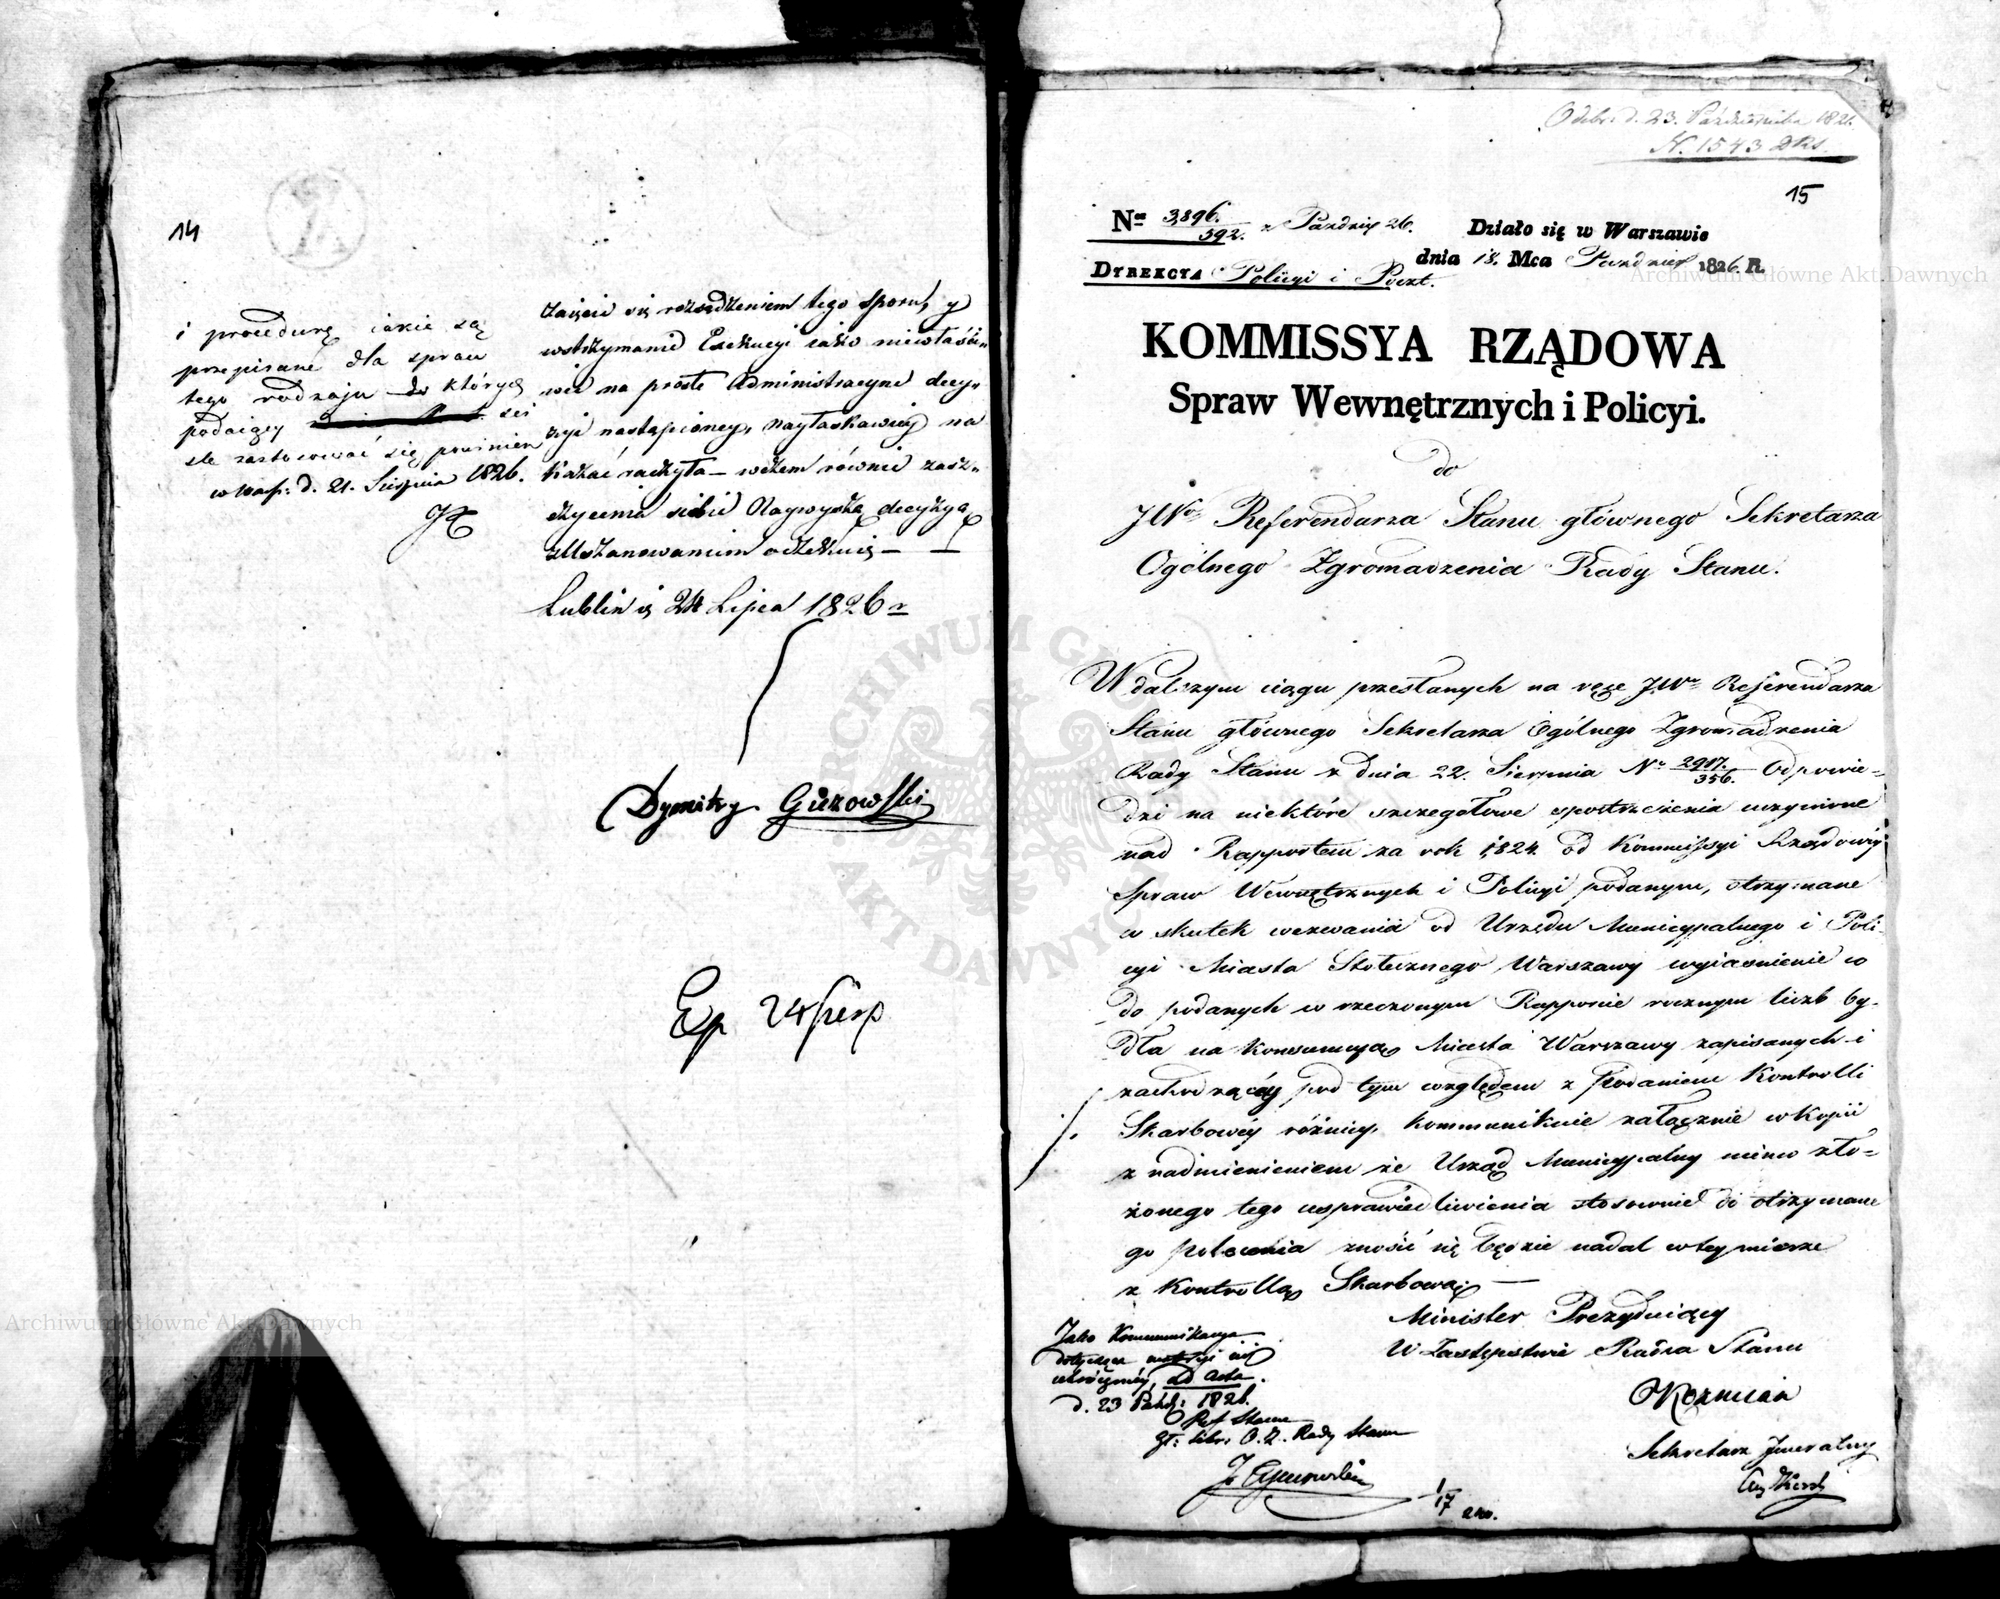 14
i procedurę jakie są
przepisane dla spraw
tego rodzaju do których
podaiący
stosować się powinien
w Warsz: d. 21. Sierpnia 1826.
zaięcie się rozsądzeniem tego sporu, y
wstrzymanie Exekucyi iako niewłaści-
wie na proste Administracyine decy-
zye nastąpioney, nayłaskawiey na
kazać raczyła – wszem równie zasz-
czycenia siebie Naywyższą decyzyą
z Uszanowaniem oczekuię –
Lublin d 24 Lipca 1826 r
Dymitry Guzowski
Exp 24 Sierp
Odebr: d. 23. Października 1826.
N. 1543 RS.
15
No 3,896./592. z Paździer 26.
Działo się w Warszawie
dnia 18. Mca Październ 1826. R.
DYREKCYA Policyi i Poczt.
KOMMISSYA RZĄDOWA
Spraw Wewnętrznych i Policyi.
do
JWo Referendarza Stanu głównego Sekretarza
Ogólnego Zgromadzenia Rady Stanu.
W dalszym ciągu przesłanych na ręce JWo Referendarza
Stanu głównego Sekretarza Ogólnego Zgromadzenia
Rady Stanu z dnia 22. Sierpnia No 2917./356. Odpowie-
dzi na niektóre szczegółowe spostrzeżenia uczynione
nad Rapportem za rok 1824. od Kommissyi Rządowéy
Spraw Wewnętrznych i Policyi podanym, otrzymane
w skutek wezwania od Urzędu Municypalnego i Poli-
cyi Miasta Stołecznego Warszawy wyiaśnienie co
do podanych w rzeczonym Rapporcie rocznym liczb by-
dła na konsumcyą Miasta Warszawy zapisanych i
zachodzącéy pod tym względem z podaniem Kontrolli
Skarbowéy różnicy, kommunikuie załącznie w kopii
z nadmienieniem że Urząd Municypalny mimo zło-
żonego tego usprawiedliwienia stosownie do otrzymane
go polecenia znosić się będzie nadal w tey mierze
z Kontrollą Skarbową.
Minister Prezyduiący
W Zastępstwie Radca Stanu
Koźmian
Sekretarz Jeneralny
Jako Kommunikacya
dotycząca materyi iuż
ukończonéy, ad acta.
d. 23 Paźdz: 1826.
Ref Stanu
Gł: Sekr: O. Z. Rady Stanu
1/17
Archiwum Główne Akt Dawnych
Archiwum Główne Akt Dawnych
ARCHIWUM GŁÓWNE
AKT DAWNYCH